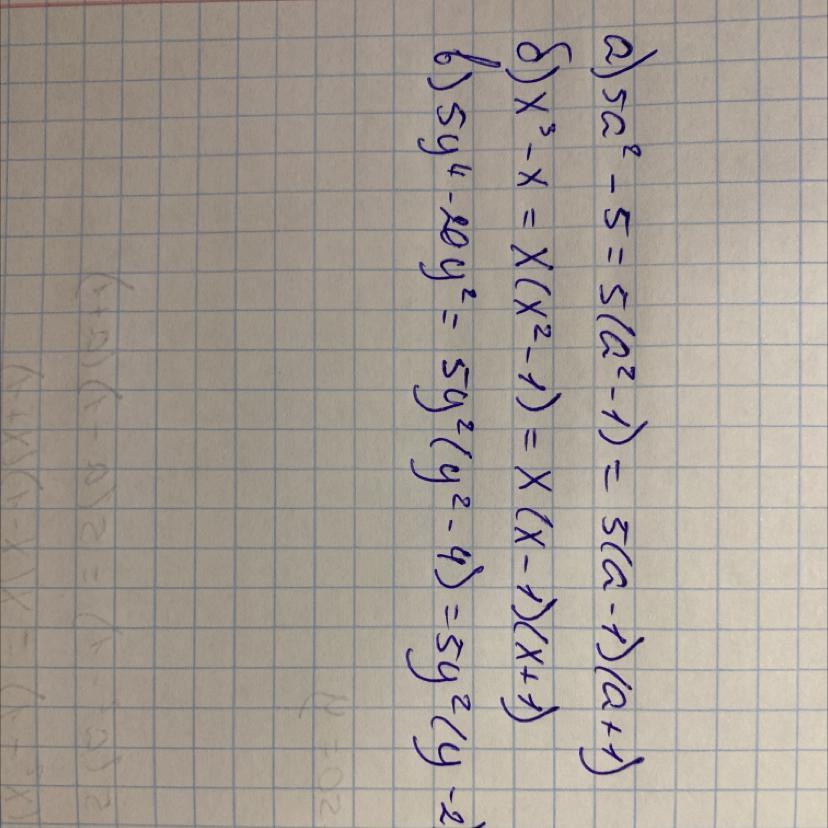 а) 5a² - 5 = 5(a² - 1) = 5(a - 1)(a + 1)
б) x³ - x = x(x² - 1) = x(x - 1)(x + 1)
в) 5y⁴ - 20y² = 5y²(y² - 4) = 5y²(y - 2)